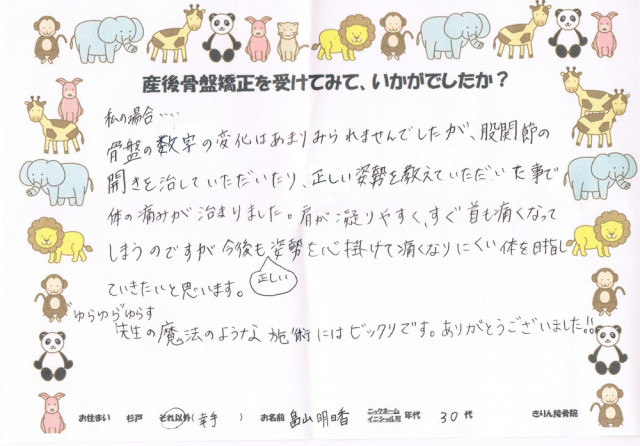 産後骨盤矯正を受けてみて、いかがでしたか？
私の場合…
骨盤の数字の変化はあまりみられませんでしたが、股関節の
開きを治していただいたり、正しい姿勢を教えていただいた事で
体の痛みが治まりました。肩が凝りやすく、すぐ首も痛くなって
しまうのですが今後も姿勢を心掛けて痛くなりにくい体を目指し
正しい
ていきたいと思います。
"ゆらゆらゆらす"
先生の魔法のような施術にはビックリです。ありがとうございました!!
お住まい 杉戸 それ以外（幸手 ） お名前 畠山明日香 ニックネーム イニシャル可 年代 30代 きりん接骨院